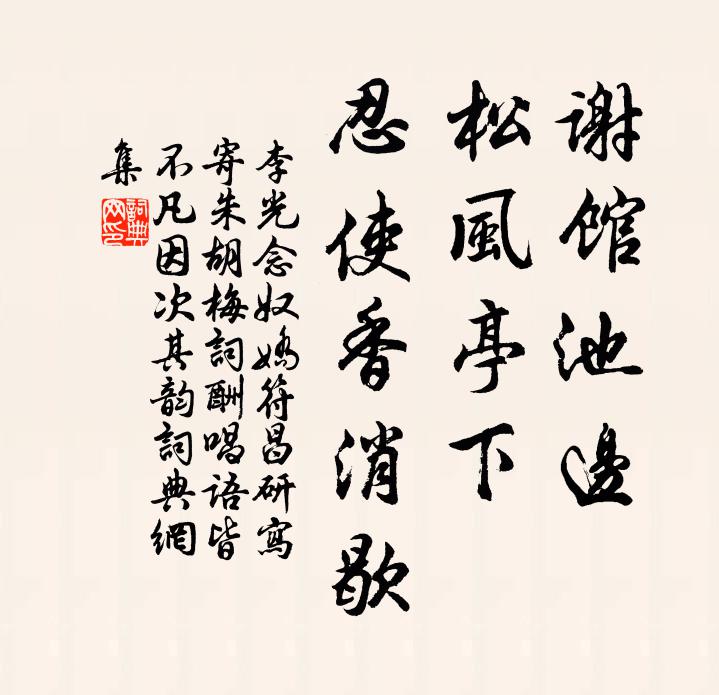 謝館池邊
松風亭下
忍使香消歇
李光念奴嬌符昌研寫
寄朱胡梅詞酬唱語皆
不凡因次其韵詞典網
集
詞典網印